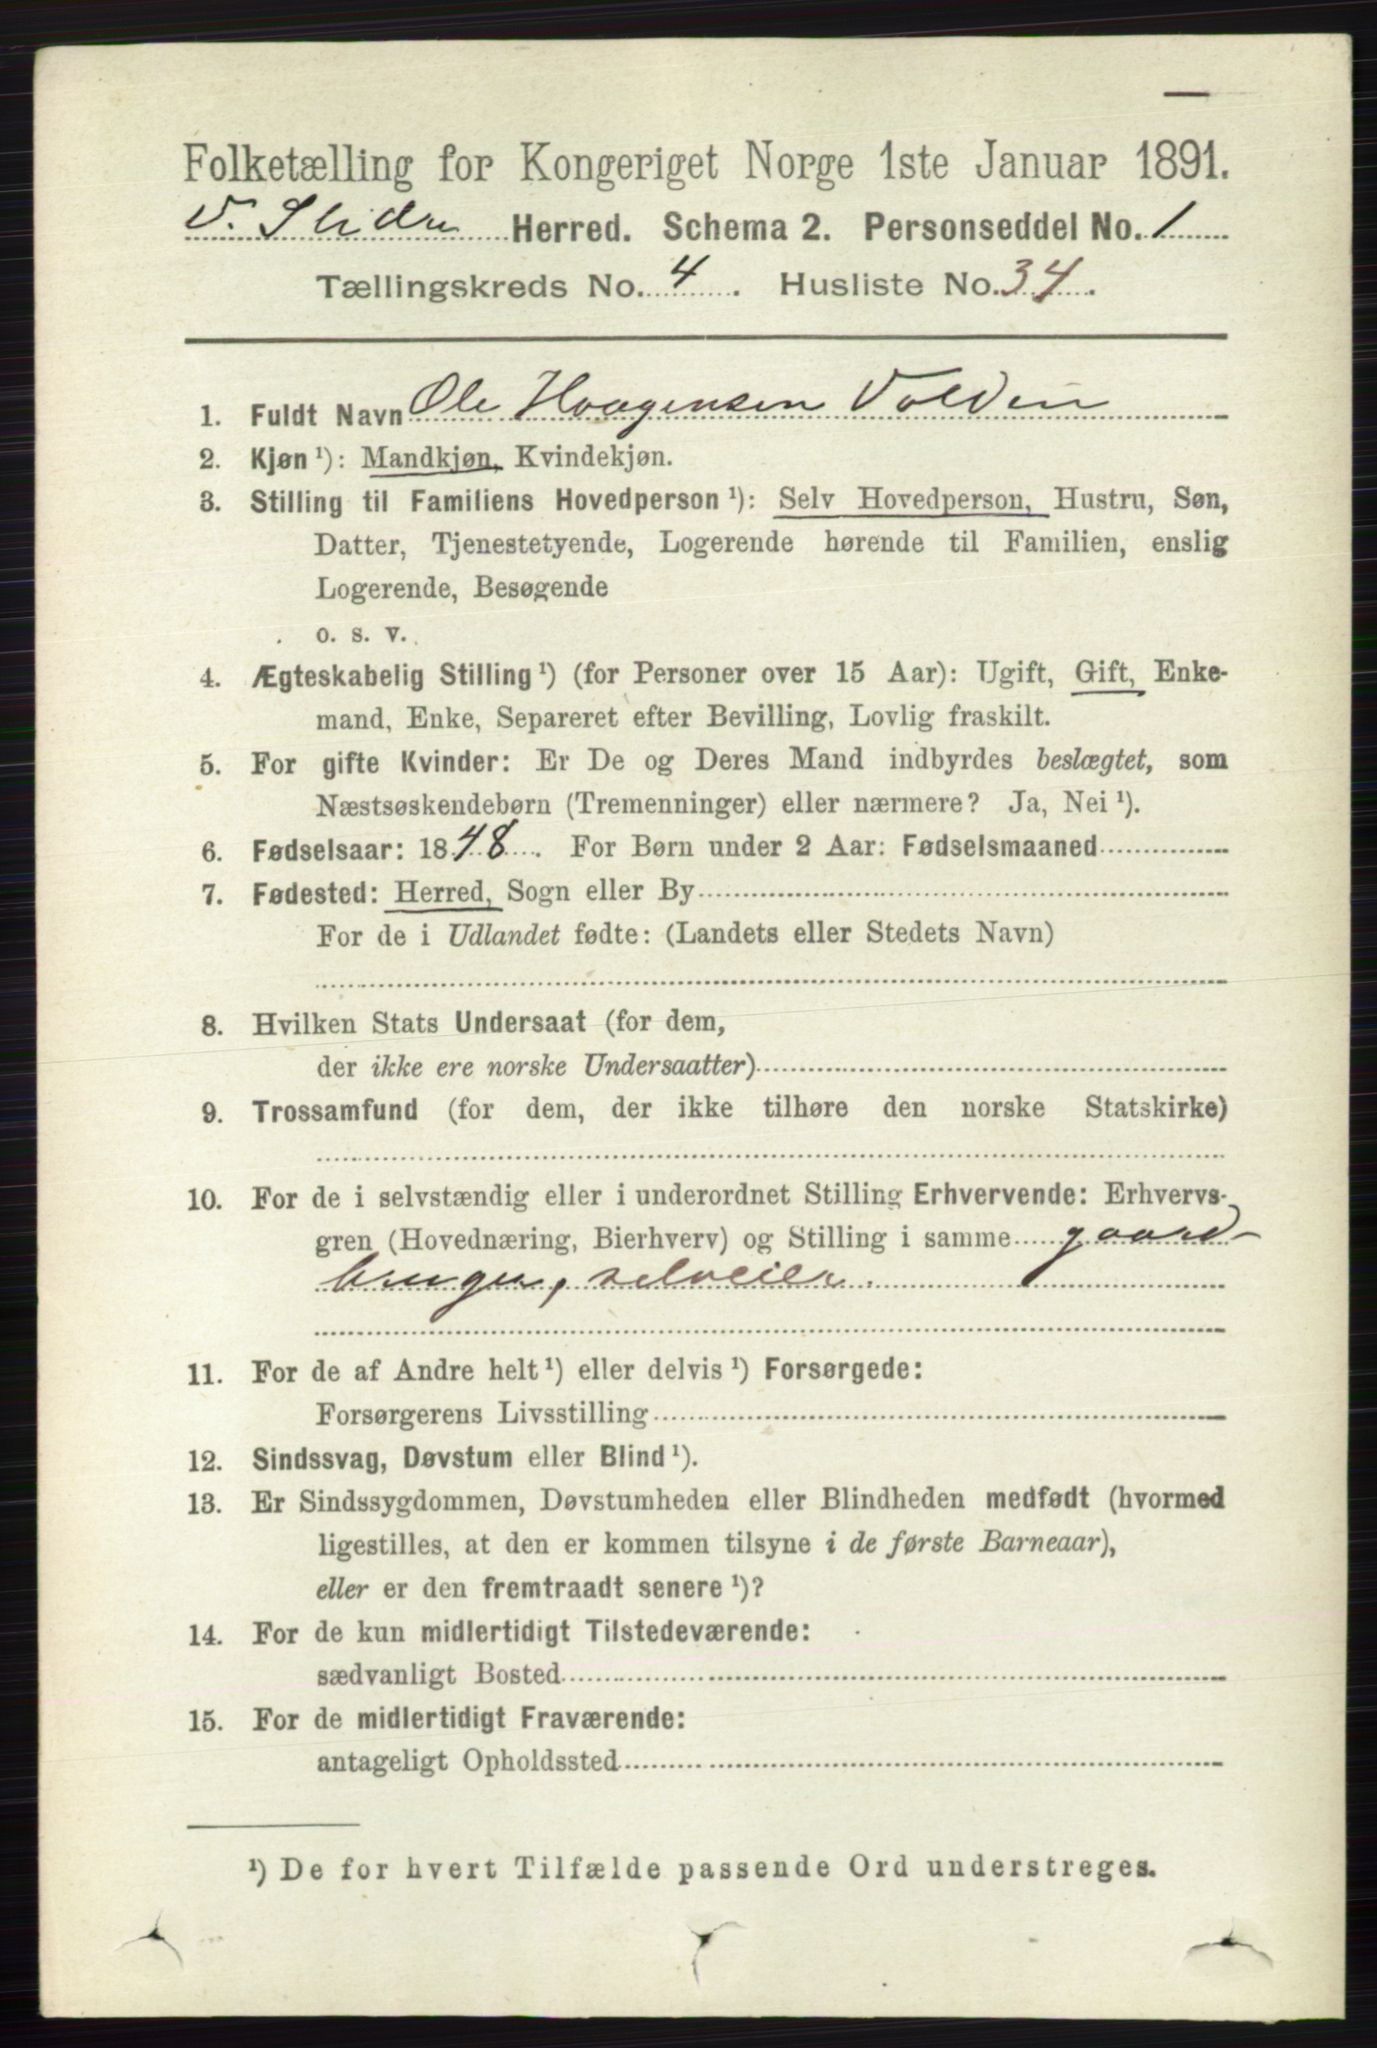 Folketælling for Kongeriget Norge 1ste Januar 1891.
V. Slidre Herred. Schema 2. Personseddel No. 1
Tællingskreds No. 4. Husliste No. 34.
1. Fuldt Navn Ole Haagensen Volden
2. Kjøn ¹): Mandkjøn, Kvindekjøn.
3. Stilling til Familiens Hovedperson ¹): Selv Hovedperson, Hustru, Søn,
Datter, Tjenestetyende, Logerende hørende til Familien, enslig
Logerende, Besøgende
o. s. v.
4. Ægteskabelig Stilling ¹) (for Personer over 15 Aar): Ugift, Gift, Enke-
mand, Enke, Separeret efter Bevilling, Lovlig fraskilt.
5. For gifte Kvinder: Er De og Deres Mand indbyrdes beslægtet, som
Næstsøskendebørn (Tremenninger) eller nærmere? Ja, Nei ¹).
6. Fødselsaar: 1848. For Børn under 2 Aar: Fødselsmaaned
7. Fødested: Herred, Sogn eller By
For de i Udlandet fødte: (Landets eller Stedets Navn)
8. Hvilken Stats Undersaat (for dem,
der ikke ere norske Undersaatter)
9. Trossamfund (for dem, der ikke tilhøre den norske Statskirke)
10. For de i selvstændig eller i underordnet Stilling Erhvervende: Erhvervs-
gren (Hovednæring, Bierhverv) og Stilling i samme gaard-
bruger, selveier.
11. For de af Andre helt ¹) eller delvis ¹) Forsørgede:
Forsørgerens Livsstilling
12. Sindssvag, Døvstum eller Blind ¹).
13. Er Sindssygdommen, Døvstumheden eller Blindheden medfødt (hvormed
ligestilles, at den er kommen tilsyne i de første Barneaar),
eller er den fremtraadt senere ¹)?
14. For de kun midlertidigt Tilstedeværende:
sædvanligt Bosted
15. For de midlertidigt Fraværende:
antageligt Opholdssted
¹) De for hvert Tilfælde passende Ord understreges.